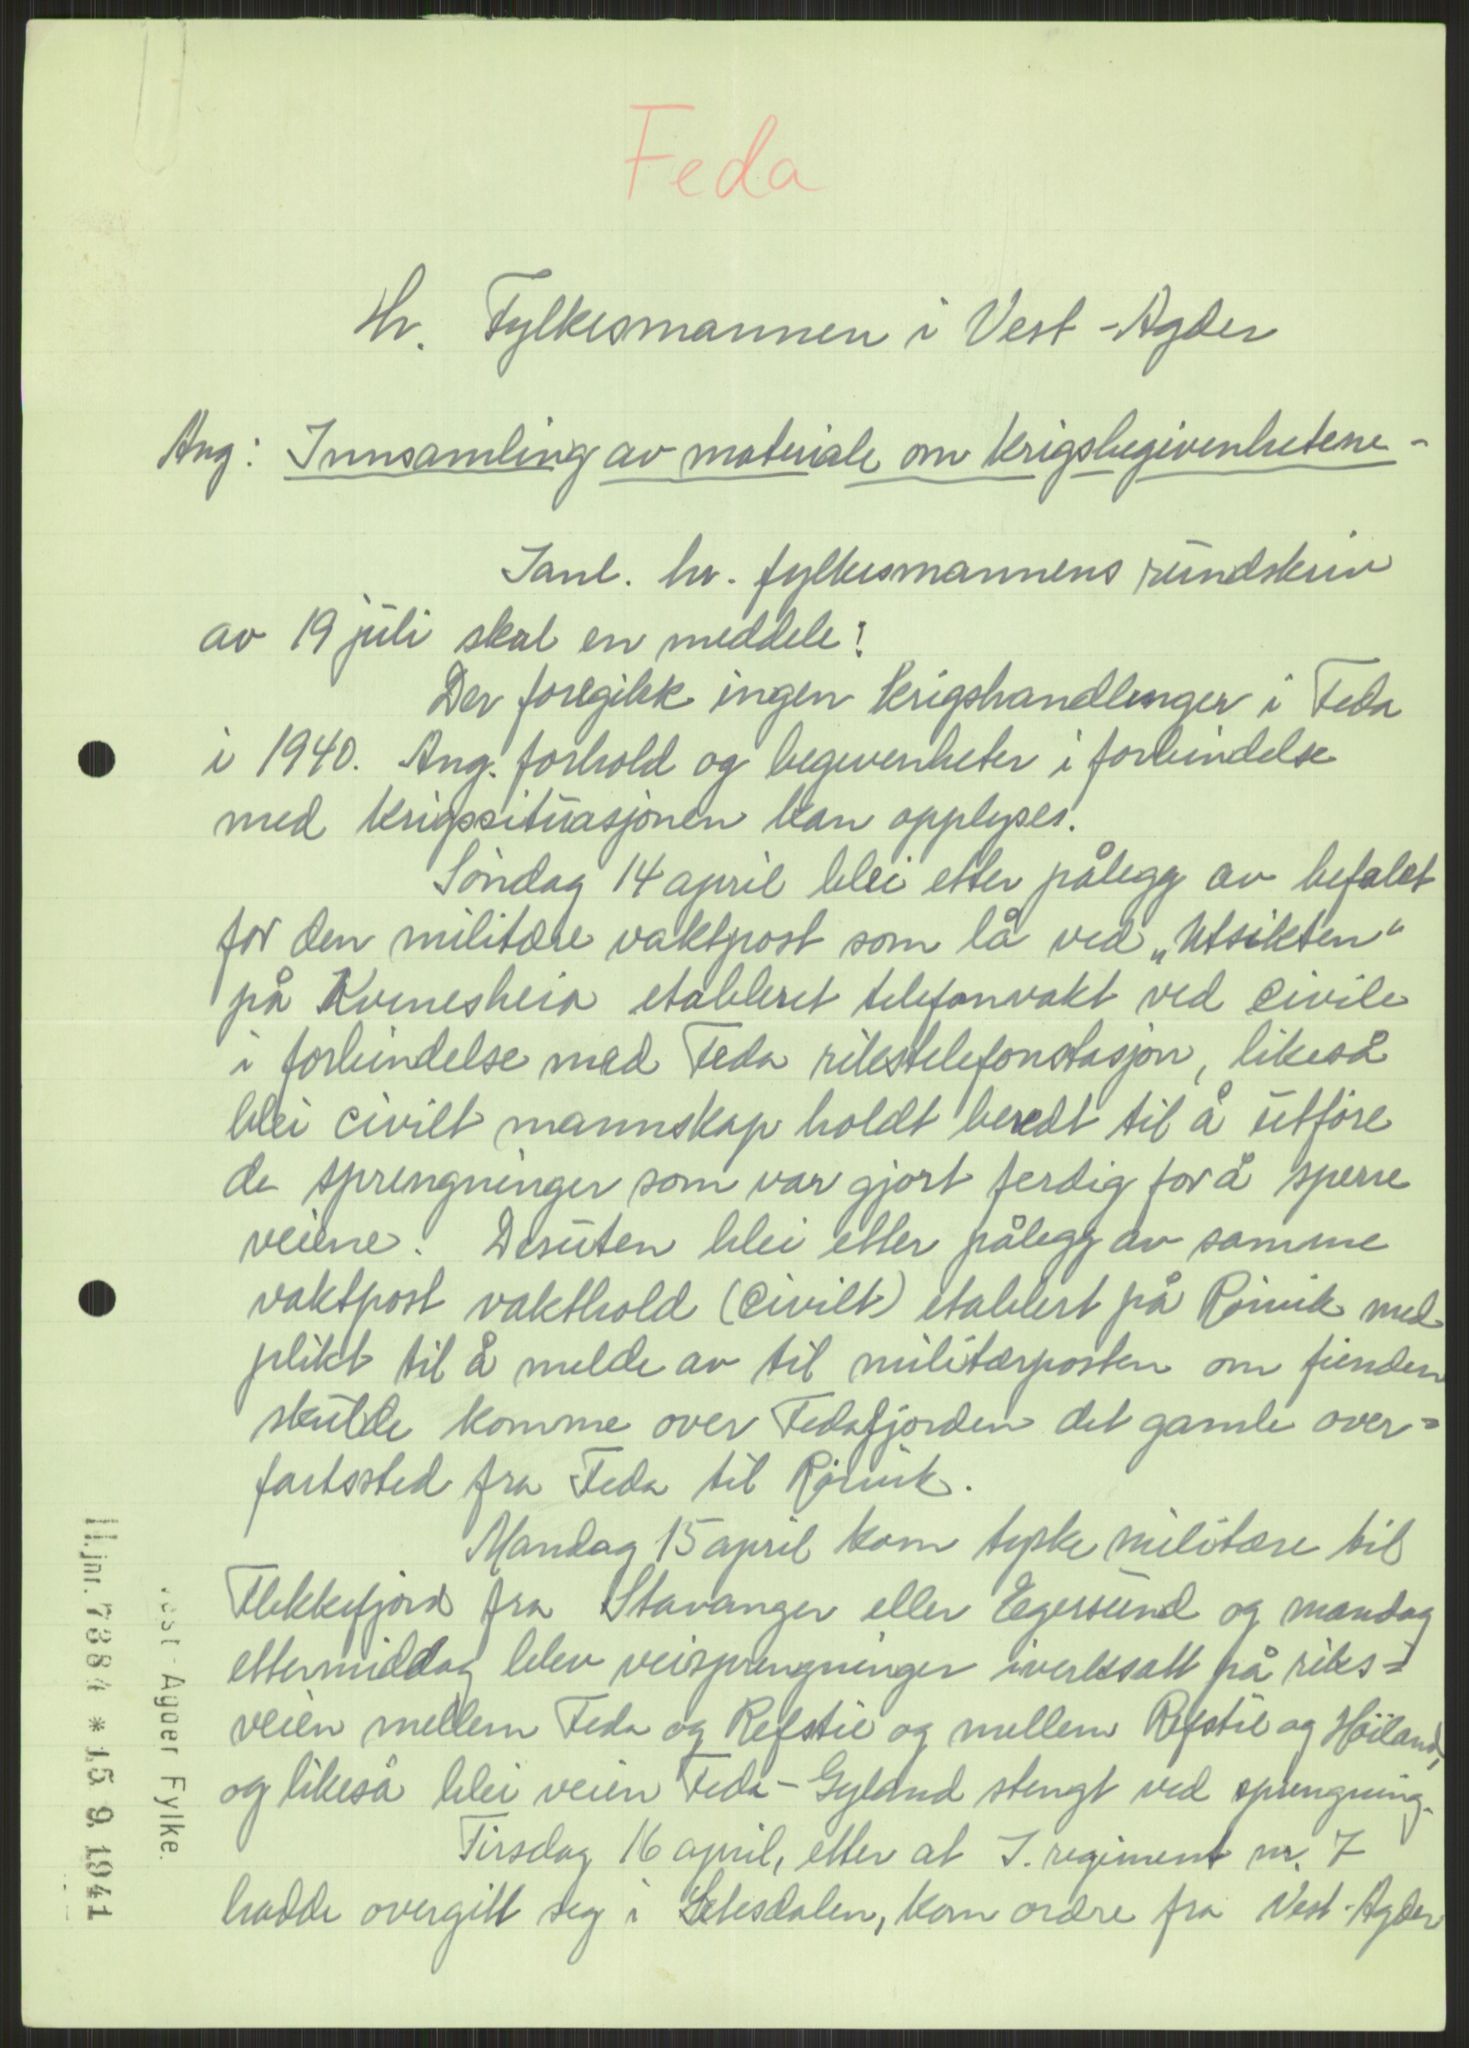 Feda
Hr. Fylkesmannen i Vest-Agder
Ang: Innsamling av materiale om krigsbegivenhetene -
Ianl. hr. fylkesmannens rundskriv
av 19 juli skal en meddele:
Der foregikk ingen krigshandlinger i Feda
i 1940. Ang. forhold og begivenheter i forbindelse
med krigssituasjonen kan opplyses.
Søndag 14 april blei etter pålegg av befalet
for den militære vaktpost som lå ved „Utsikten"
på Kvinesheia etableret telefonvakt ved civile
i forbindelse med Feda rikstelefonstasjon, likeså
blei civilt mannskap holdt beredt til å utføre
de sprengninger som var gjort ferdig for å sperre
veiene. Desuten blei etter pålegg av samme
vaktpost vakthold (civilt) etablert på Rørvik med
plikt til å melde av til militærposten om fienden
skulde komme over Fedafjorden det gamle over=
fartssted fra Feda til Rørvik.
Mandag 15 april kom tyske militære til
Flekkefjord fra Stavanger eller Egersund og mandag
ettermiddag blev veisprengninger iverksatt på riks=
veien mellem Feda og Refstie og mellem Refstie og Høiland,
og likeså blei veien Feda-Gyland stengt ved sprengning.
Tirsdag 16 april, etter at I. regiment nr. 7
hadde overgitt seg i Setesdalen, kom ordre fra Vest-Agder
Vest-Agder Fylke.
II.jnr. 7884 * 15 9. 1941